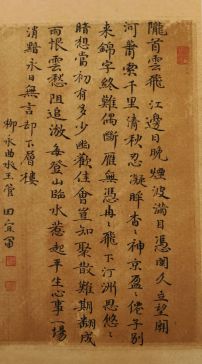 隴首雲飛江邊日晚煙波滿目憑闌久立望關
河蕭索千里清秋忍凝眸杳〻神京盈〻僊子別
來錦字終難偶斷雁無憑冉〻飛下汀洲思悠〻
暗想當初有多少幽歡佳會豈知聚散難期翻成
雨恨雲愁阻追遊每登山臨水惹起平生心事一場
消黯永日無言却下層樓
柳永曲玉管 田宜寫